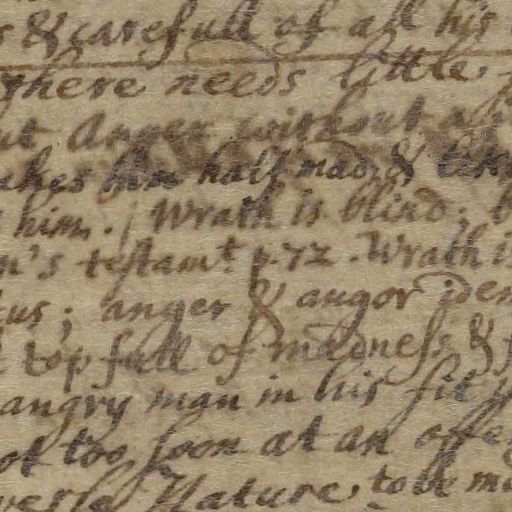 & carefull of all his
there needs little
Anger without a
him half mad, & like
him. / Wrath is blind;
testamt. p. 72. Wrath is
anger & augor idem
top full of madness &
angry man in his fit
too soon at an offe
Nature, to be